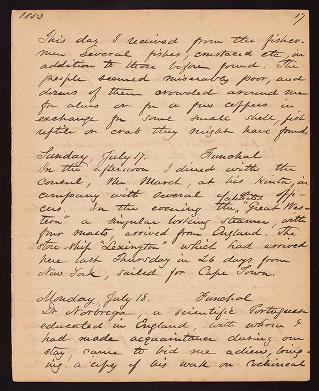 1853 17
This day I received from the fisher-
men several fishes, crustacea etc, in
addition to those before found. The
people seemed miserably poor, and
dozens of them crowded around me
for alms or for a few coppers in
exchange for some small shell, fish
reptile or crab they might have found.
Sunday, July 17. Funchal
In the afternoon I dined with the
Consul, Mr. March, at his Quinta, in
company with several of our offi-
cers. In the evening the celebrated "Great Wes-
tern" a singular looking steamer, with
four masts, arrived from England. The
store ship "Lexington" which had arrived
here last Thursday in 26 days from
New York, sailed for Cape Town.
Monday, July 18. Funchal
Dr. Norbrega, a scientific Portuguese
educated in England, with whom I
had made acquaintance during our
stay, came to bid me adieu, bring-
ing a copy of his work on Cochineal